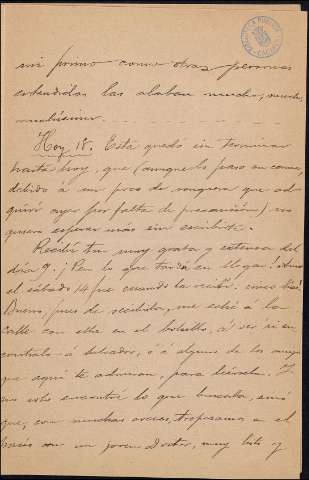 mi primo como otras personas
entendidas las alaban mucho, mucho,
muchísimo.
Hoy 18. Esta quedó sin terminar
hasta hoy, que (aunque lo paso en cama,
debido á un poco de ronquera que ad-
quirí ayer por falta de precaución) no
quiero esperar más sin escribirte.
Recibí tu muy grata y extensa del
día 9. ¡Pero lo que tardó en llegar!
el sábado 14 fue cuando la recibí. cinco días!
Bueno, pues de recibirla, me eché á la
calle con ella en el bolsillo, á ver si en-
contraba á Salvador, ó á alguno de los amigos
que aquí te admiran, para leérsela. Y
no solo encontré lo que buscaba, sinó
que, con muchas veces, tropezamos en el
con un joven Doctor, muy listo y